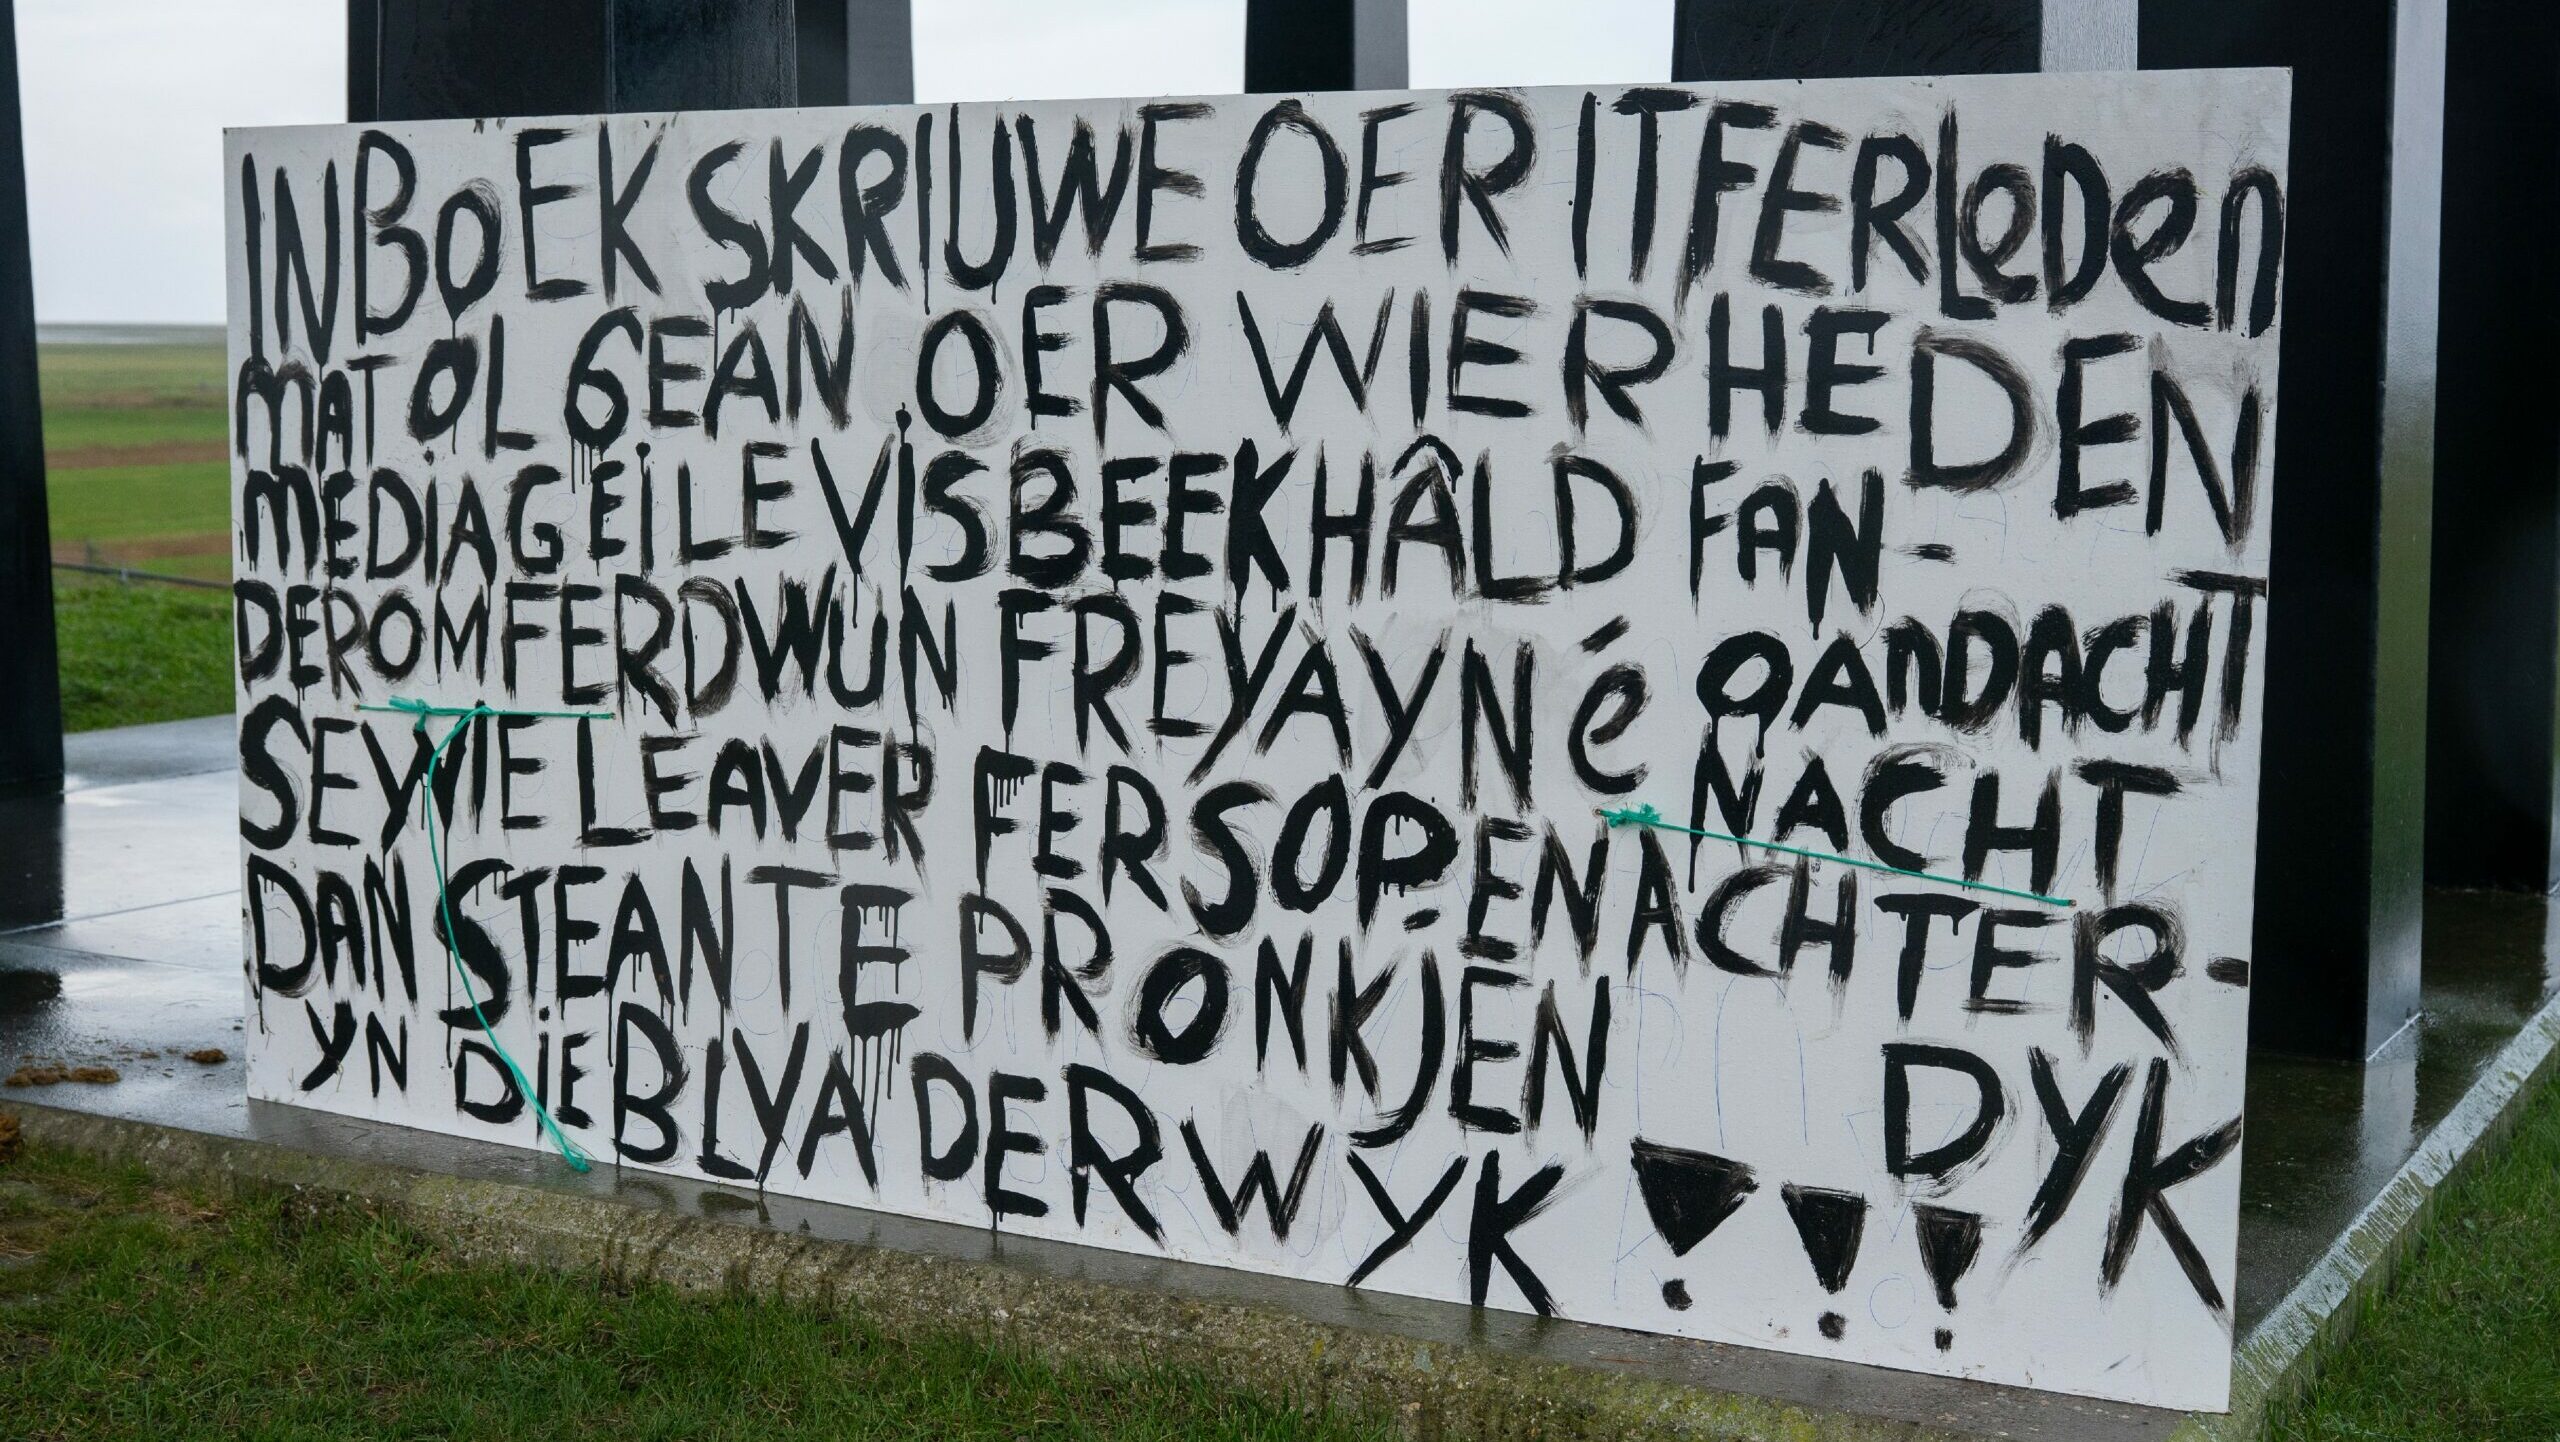 IN BOEK SKRIUWE OER IT FERLeDen
MAT OL GEAN OER WIERHEDEN
MEDIAGEILE VISBEEK HÂLD FAN-
OAnDACHT
DEROM FERDWUN FREYA YN é
NACHT
SEY WIE LEAVER FERSOPEN ACHTER-
DYK
DAN STEANTE PRONKJEN
YN DiE BLYADER WYK!!!